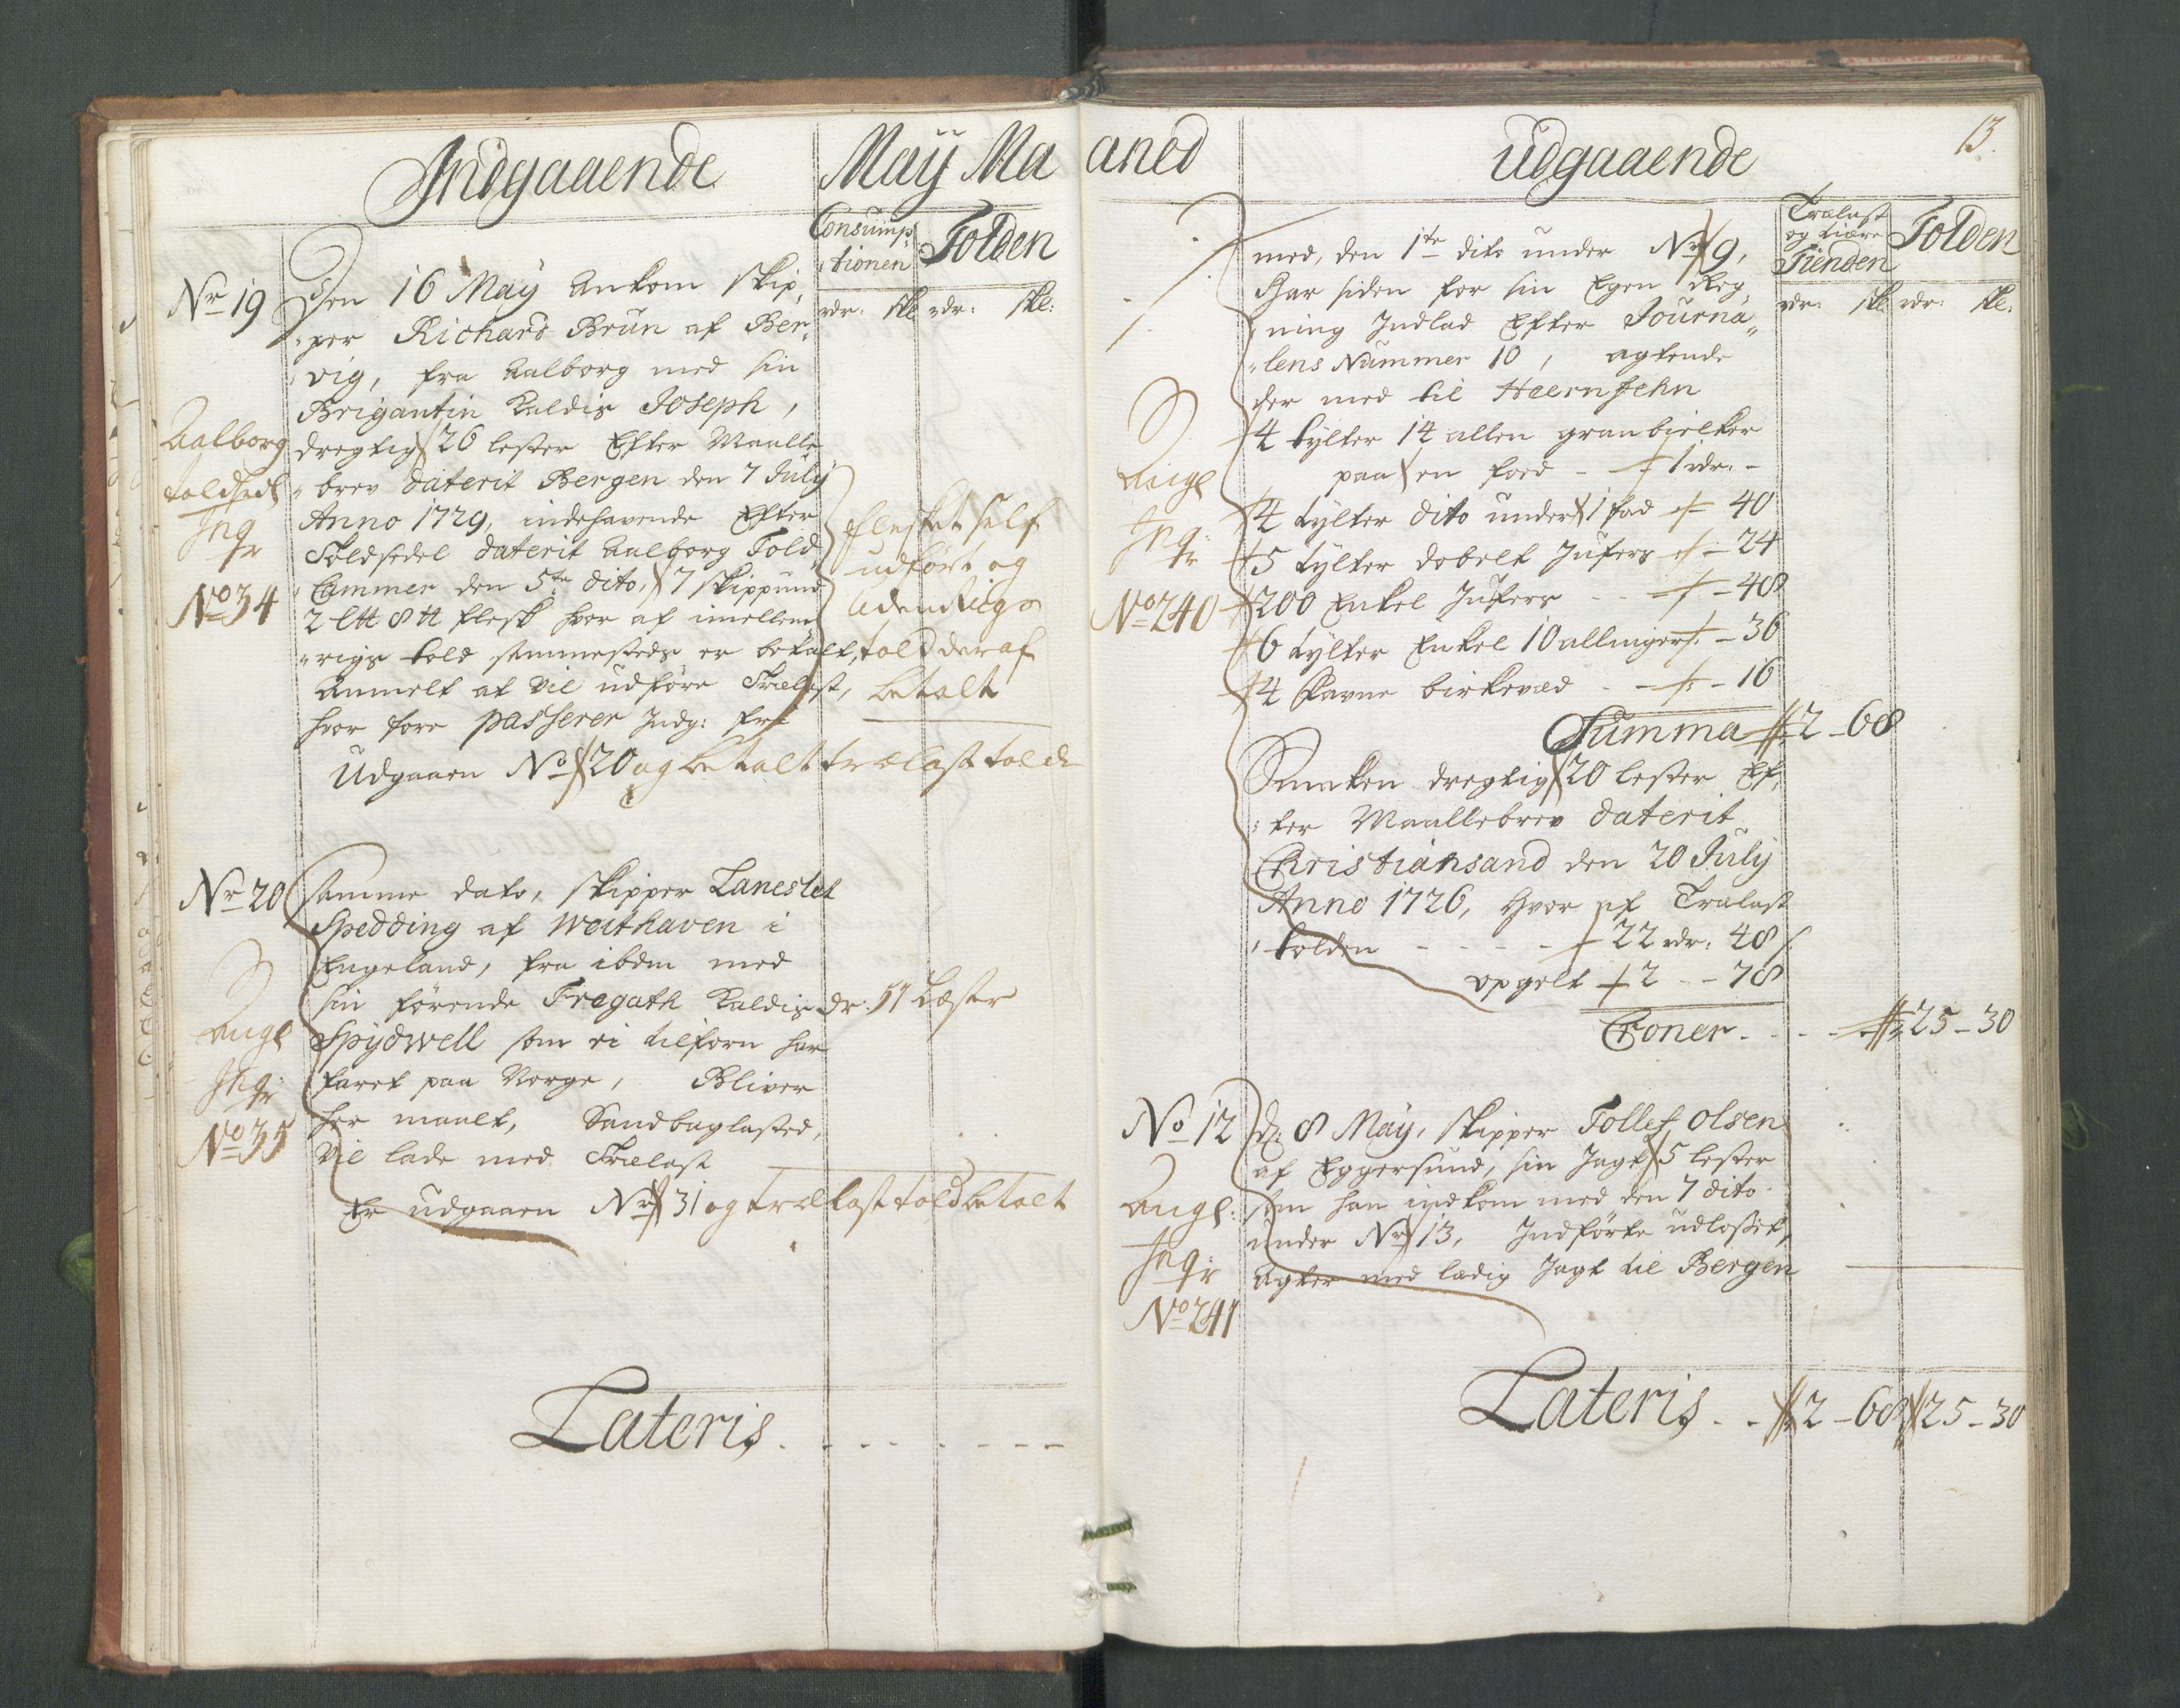 Indgaaende
May Ma
Consump-
tionen
Tolden
rdr: sk: rdr: sk:
Nr 19
Den 16 May Ankom Skip-
per Richard Brun af Ber-
vig, fra Aalborg med sin
Brigantin kaldis Joseph,
dregtig 26 lester Efter Maalle
brev daterit Bergen den 7 July
Anno 1729, indehavende Efter
Toldsedel daterit Aalborg Told
Cammer den 5te dito, 7 skippund
2 L℔ 8 ℔ flesk hvor af imellem
rigs told sammesteds er betalt,
Anmelt at vil udføre Trælast,
hvor fore passerer Indg: fri
Udgaaen No 20 og betalt trælast told
Aalborg
toldsedl
Jng
No 34
flesket self
udført og
udenrigs
told deraf
betalt
Nr 20
Samme dato, Skipper Laneslet
Spedding af Weithaven i
Engeland, fra ibdm med
sin førende Fregath kaldis
Spydwell som ei tilforn har
faret paa Norge, Bliver
her maalt, Sandbaglasted,
vil lade med Trælast
Er udgaaen Nr 31 og trælast told betalt
dr: 51 Læster
Angl
Jngr
No 35
Lateris
aned
udgaaende
13.
Trælast
og tiære
Tienden
Tolden
rdr: sk: rdr: sk:
med, den 1te dito under Nr 9,
Har siden for sin Egen Reg-
ning Indlad Efter Journa-
lens Nummer 10, agtende
der med til Heernfehn
4 tylter 14 allen granbielker
paa en foed - 1 rdr: -
4 tylter dito under 1 fod - 40
5 tylter dobelt Jufers - 24
200 Enkel Jufers - - 48
6 tylter Enkel 10 allninger - 36
4 favne birkeved - - 16
Summa 2 - 68
Angl
Jngr
No 240
Smaken dregtig 20 lester Ef-
ter Maallebrev daterit
Christiansand den 20 July
Anno 1726, hvor af Trælast
tolden - - - - 22 rdr: 48 s
opgelt 2 - - 78
Croner - - - 25 - 30
No 12
d: 8 May, Skipper Tollef Olsen
af Eggersund, sin Jagt 5 lester
som han indkom med den 7 dito
under Nr 13, Indførte udlosset,
agter med ledig Jagt til Bergen
Angl:
Jngr
No 241
Lateris - - 2 - 68 25 - 30